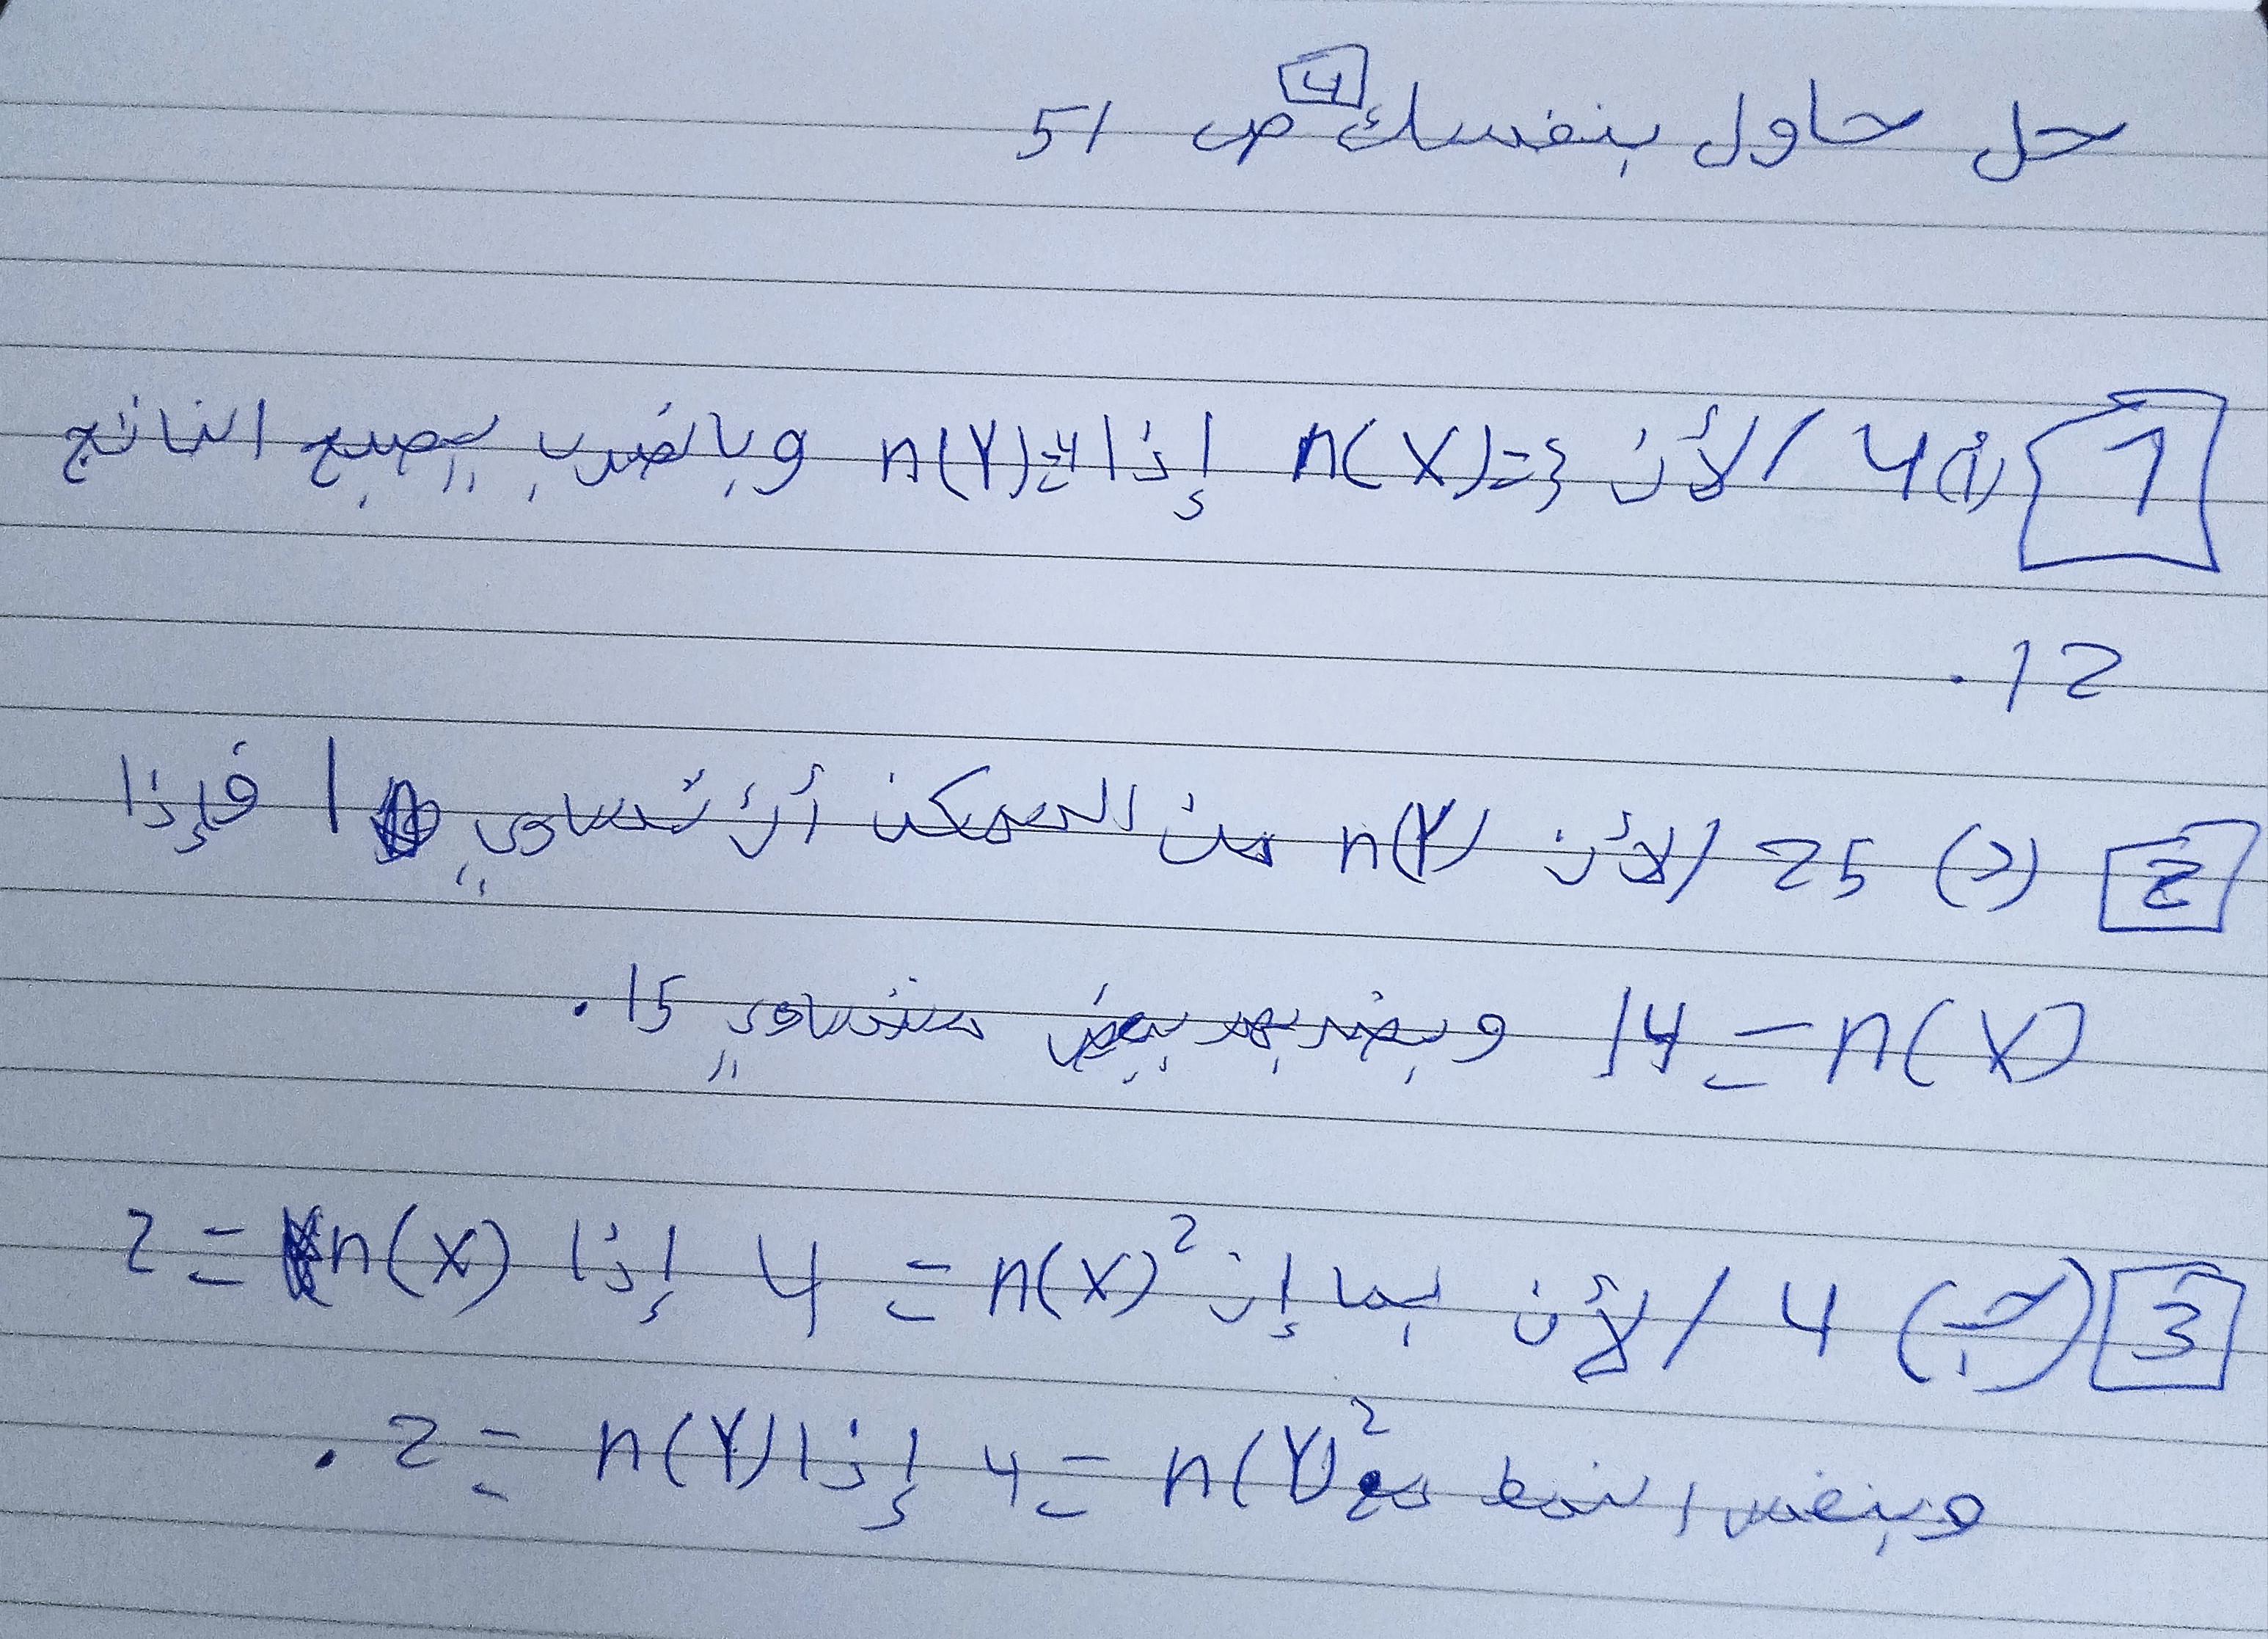 حل حاول بنفسك 4 ص 51
1 (أ) 4 / لأن n(X)=3 إذا n(Y)=4 وبالضرب يصبح الناتج
12.
2 (د) 25 / لأن n(Y) من الممكن أن تساوي 1 فإذا
n(X) = 14 وبضربهم ببعض ستساوي 15.
3 (جـ) 4 / لأن بما إن n(X)² = 4 إذا n(X) = 2
وبنفس النمط مع n(Y)² = 4 إذا n(Y) = 2.